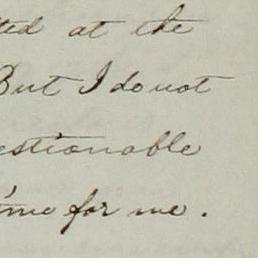 ted at the
But I do not
estionable
time for me.